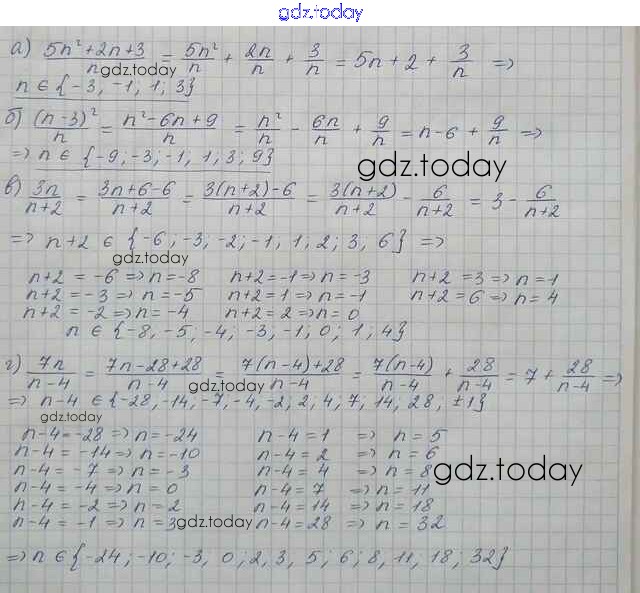 gdz.today
а) (5n²+2n+3)/n = 5n²/n + 2n/n + 3/n = 5n + 2 + 3/n ⇒
gdz.today
n ∈ {-3, -1, 1; 3}
б) (n-3)²/n = (n²-6n+9)/n = n²/n - 6n/n + 9/n = n-6 + 9/n ⇒
⇒ n ∈ {-9; -3; -1, 1; 3; 9}
gdz.today
в) 3n/(n+2) = (3n+6-6)/(n+2) = (3(n+2)-6)/(n+2) = 3(n+2)/(n+2) - 6/(n+2) = 3 - 6/(n+2)
⇒ n+2 ∈ {-6; -3; -2; -1, 1; 2; 3, 6} ⇒
gdz.today
n+2 = -6 ⇒ n = -8 n+2 = -1 ⇒ n = -3 n+2 = 3 ⇒ n = 1
n+2 = -3 ⇒ n = -5 n+2 = 1 ⇒ n = -1 n+2 = 6 ⇒ n = 4
n+2 = -2 ⇒ n = -4 n+2 = 2 ⇒ n = 0
n ∈ {-8, -5, -4; -3; -1; 0; 1; 4}
г) 7n/(n-4) = (7n-28+28)/(n-4) = (7(n-4)+28)/(n-4) = 7(n-4)/(n-4) + 28/(n-4) = 7 + 28/(n-4) ⇒
gdz.today
⇒ n-4 ∈ {-28, -14, -7, -4, -2; 2; 4; 7; 14; 28, ±1}
gdz.today
n-4 = -28 ⇒ n = -24 n-4 = 1 ⇒ n = 5
n-4 = -14 ⇒ n = -10 n-4 = 2 ⇒ n = 6
n-4 = -7 ⇒ n = -3 n-4 = 4 ⇒ n = 8
gdz.today
n-4 = -4 ⇒ n = 0 n-4 = 7 ⇒ n = 11
n-4 = -2 ⇒ n = 2 n-4 = 14 ⇒ n = 18
n-4 = -1 ⇒ n = 3 n-4 = 28 ⇒ n = 32
gdz.today
⇒ n ∈ {-24; -10; -3, 0; 2, 3, 5; 6; 8, 11, 18, 32}